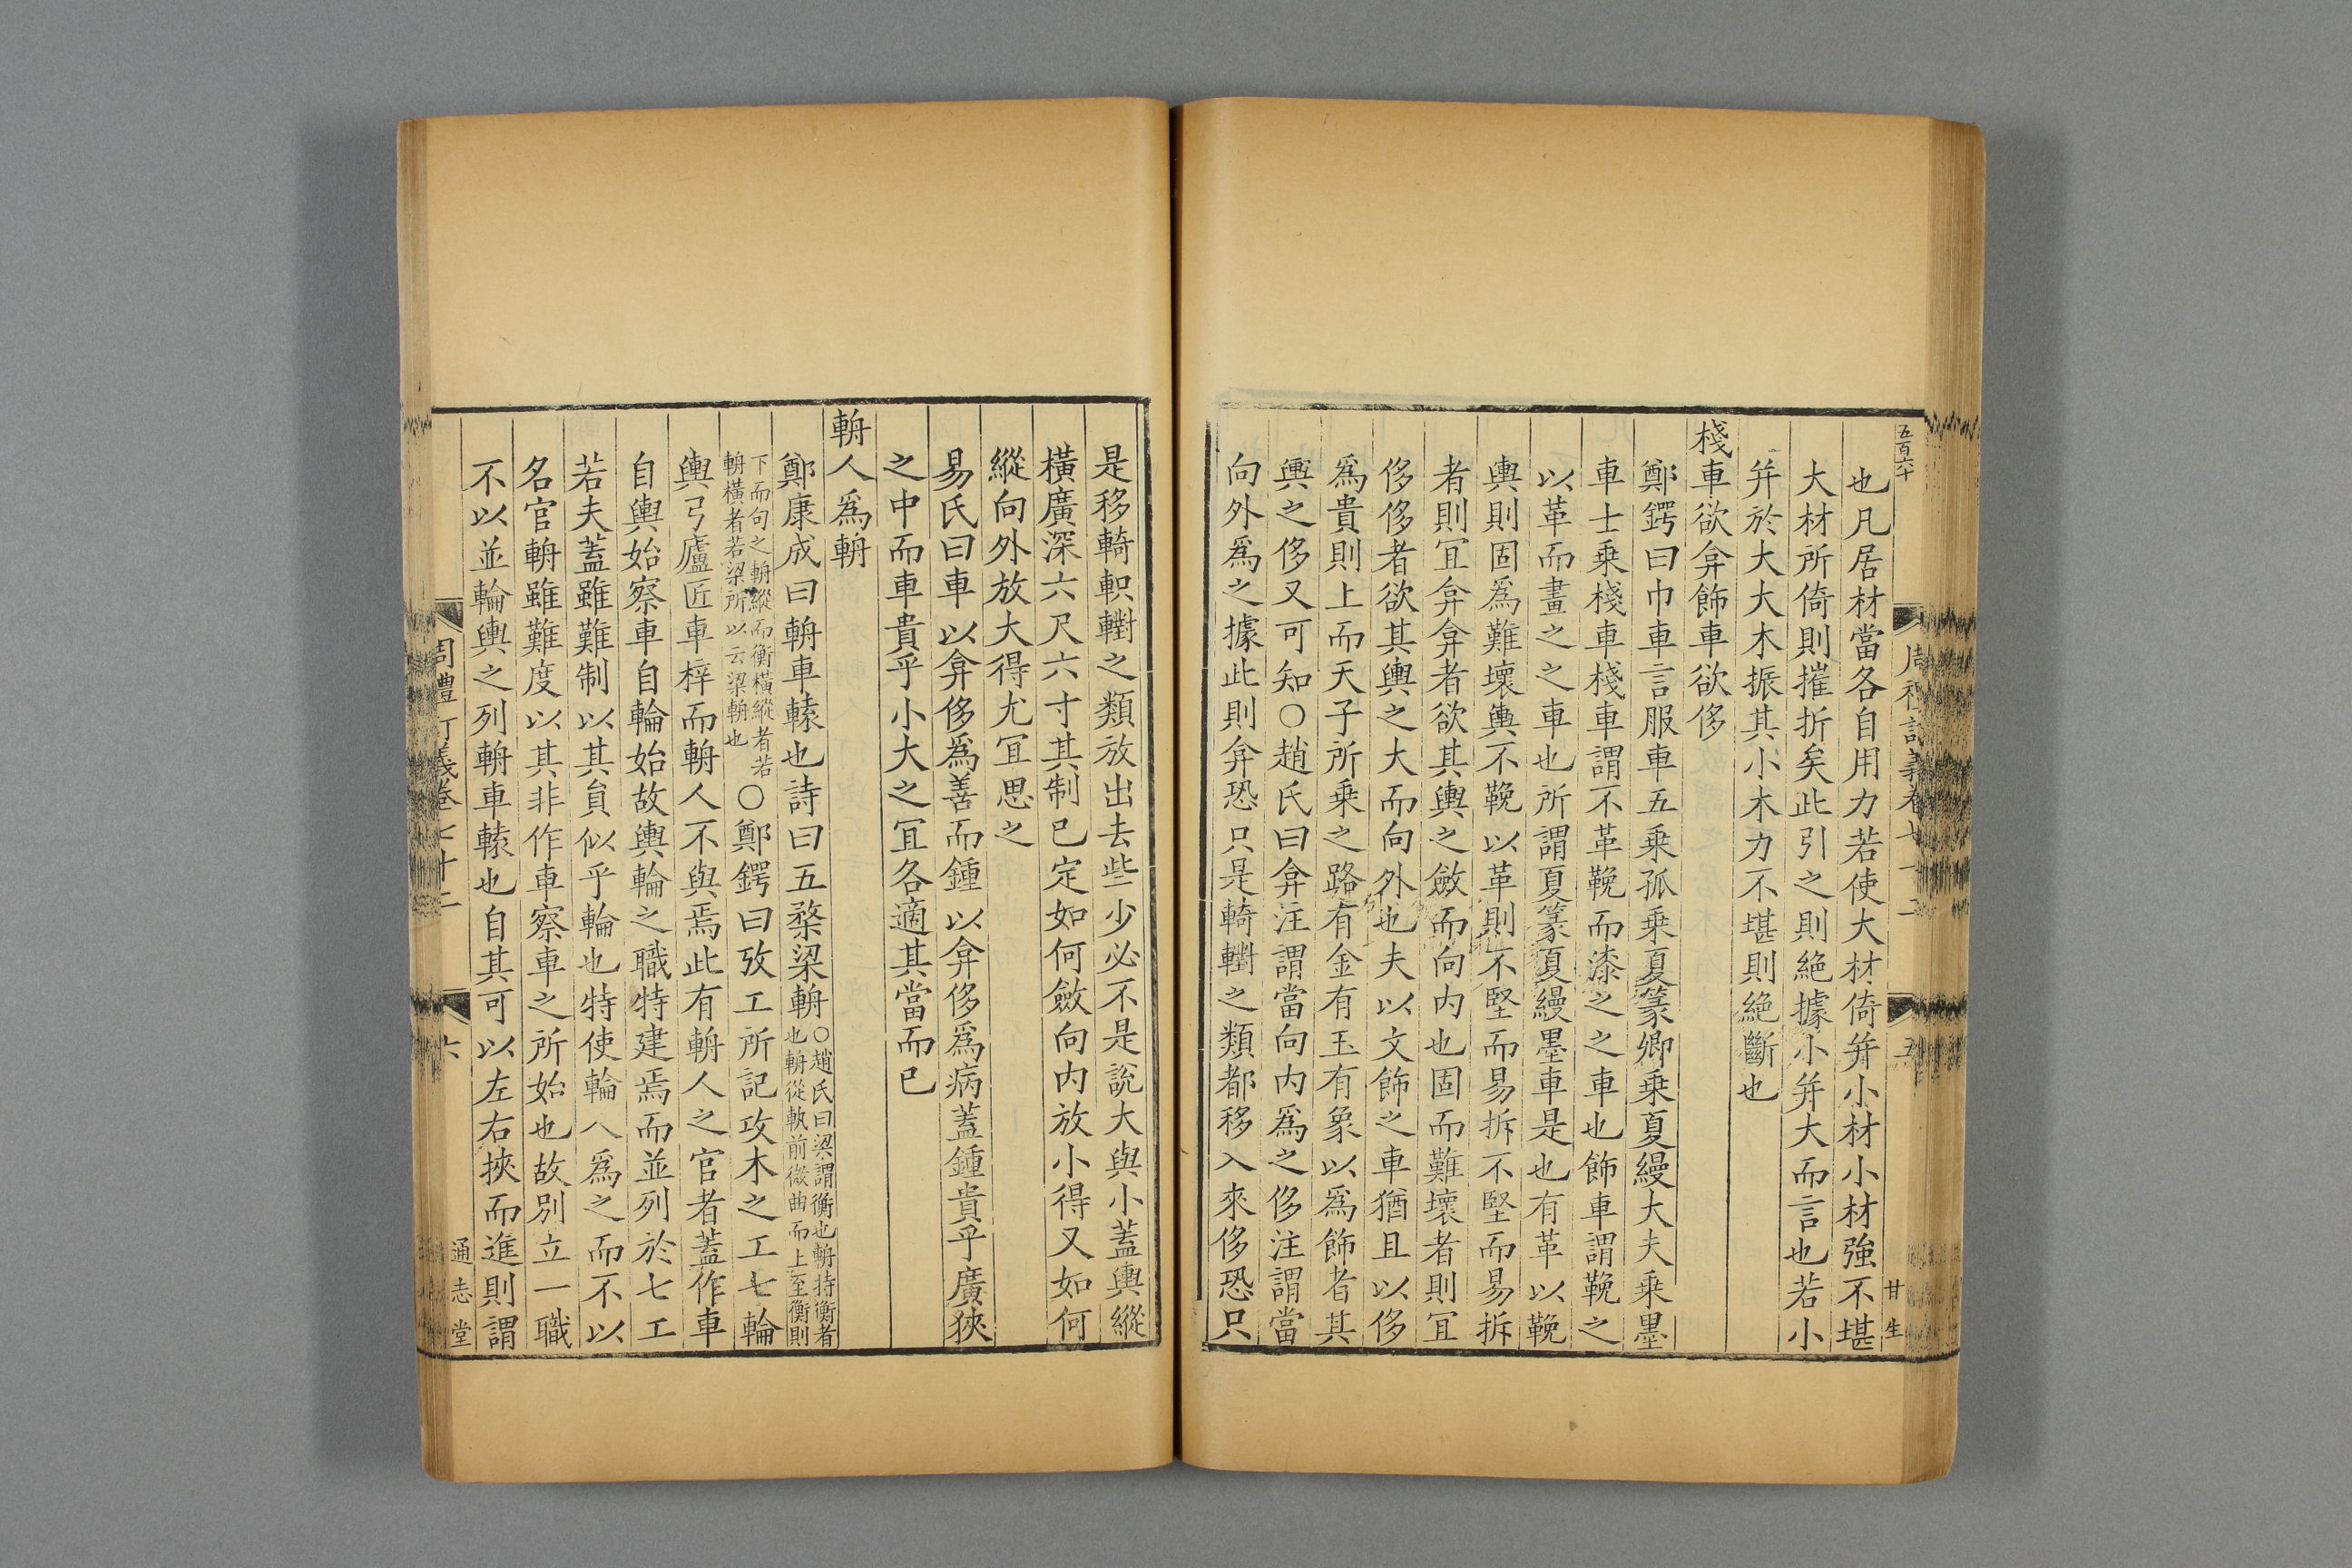 五百六十
周禮訂義卷七十二
五
甘生
也凡居材當各自用力若使大材倚并小材小材強不堪
大材所倚則摧折矣此引之則絕據小并大而言也若小
并於大大木振其小木力不堪則絕斷也
棧車欲弇飾車欲侈
鄭鍔曰巾車言服車五乘孤乘夏篆卿乘夏縵大夫乘墨
車士乘棧車棧車謂不革鞔而漆之之車也飾車謂鞔之
以革而畫之之車也所謂夏篆夏縵墨車是也有革以鞔
輿則固爲難壞輿不鞔以革則不堅而易拆不堅而易拆
者則宜弇弇者欲其輿之斂而向内也固而難壞者則宜
侈侈者欲其輿之大而向外也夫以文飾之車猶且以侈
爲貴則上而天子所乘之路有金有玉有象以爲飾者其
輿之侈又可知○趙氏曰弇注謂當向内爲之侈注謂當
向外爲之據此則弇恐只是輢轛之類都移入來侈恐只
是移輢軹轛之類放出去些少必不是說大與小蓋輿縱
橫廣深六尺六寸其制已定如何斂向内放小得又如何
縱向外放大得尤宜思之
易氏曰車以弇侈爲善而鍾以弇侈爲病蓋鍾貴乎廣狹
之中而車貴乎小大之宜各適其當而已
輈人爲輈
鄭康成曰輈車轅也詩曰五楘梁輈○趙氏曰梁謂衡也輈持衡者
也輈從軓前微曲而上至衡則
下而句之輈縱而衡橫縱者若
輈橫者若梁所以云梁輈也○鄭鍔曰攷工所記攻木之工七輪
輿弓廬匠車梓而輈人不與焉此有輈人之官者蓋作車
自輿始察車自輪始故輿輪之職特建焉而並列於七工
若夫蓋雖難制以其員似乎輪也特使輪人爲之而不以
名官輈雖難度以其非作車察車之所始也故別立一職
不以並輪輿之列輈車轅也自其可以左右挾而進則謂
周禮訂義卷七十二
六
通志堂